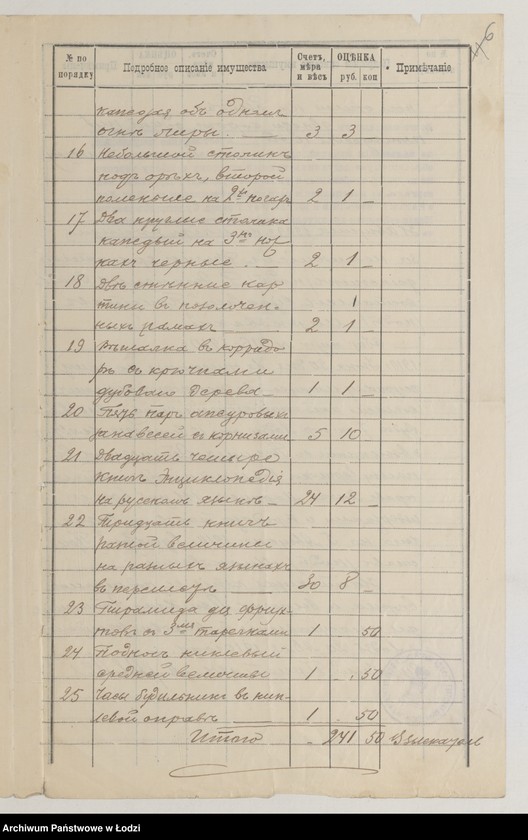 6
№ по порядку | Подробное описание имущества | Счетъ, мѣра и вѣсъ | ОЦѢНКА руб. коп | Примѣчаніе
каждая объ одномъ
огнѣ 3 3 –
16 Небольшой столикъ
подъ орѣхъ, второй
поменьше на 2хъ 2 1 –
17 Два круглые столика
каждый на 3хъ нож
кахъ черные. – 2 1 –
18 Двѣ стѣнные кар
тины въ позолочен-
ныхъ рамахъ 2 1 –
19 Вѣшалка въ коррадо
рѣ съ крючками
дубоваго дерева 1 1 –
20 Пять паръ ажуровыхъ
занавесей съ корнизами 5 10 –
21 Двадцать четыре
книгъ Энциклопедія
на русскомъ языкѣ – 24 12 –
22 Тридцать книгъ
разной величины
на разныхъ языкахъ
въ переплетѣ 30 8 –
23 Пирамида для фрук-
товъ съ 3мя тарелками 1 . 50
24 Подносъ никлевый
средней величины 1 . 50
25 Часы будильникъ въ ник-
левой оправѣ 1 . 50
Итого – 241 50
Archiwum Państwowe w Łodzi